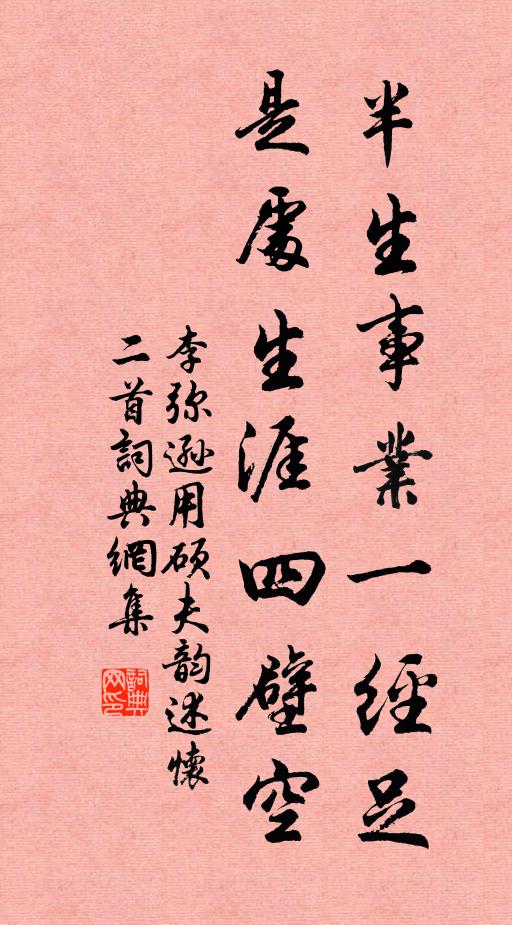 半生事業一經足
是處生涯四壁空
李弥遜用硕夫韵述懷
二首詞典網集
詞典
网印